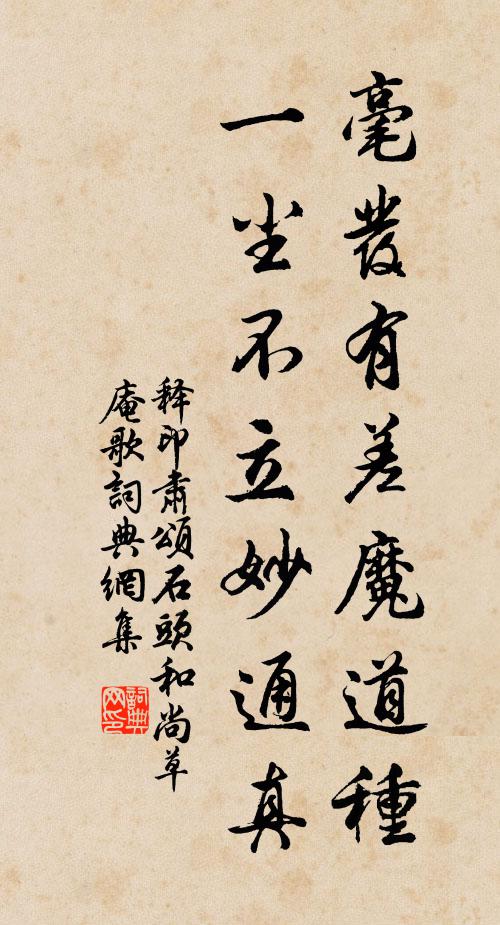 毫發有差魔道種
一尘不立妙通真
释印肅頌石頭和尚草
庵歌詞典網集
詞典
网印